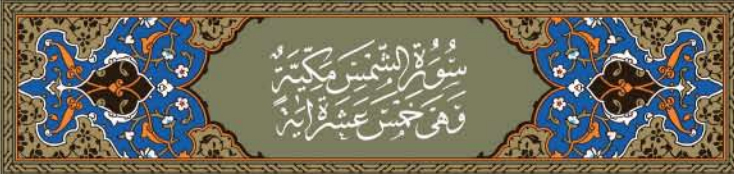 سُورَةُ الشَّمْسِ مَكِّيَّةٌ
وَهِيَ خَمْسَ عَشْرَةَ اٰيَةً